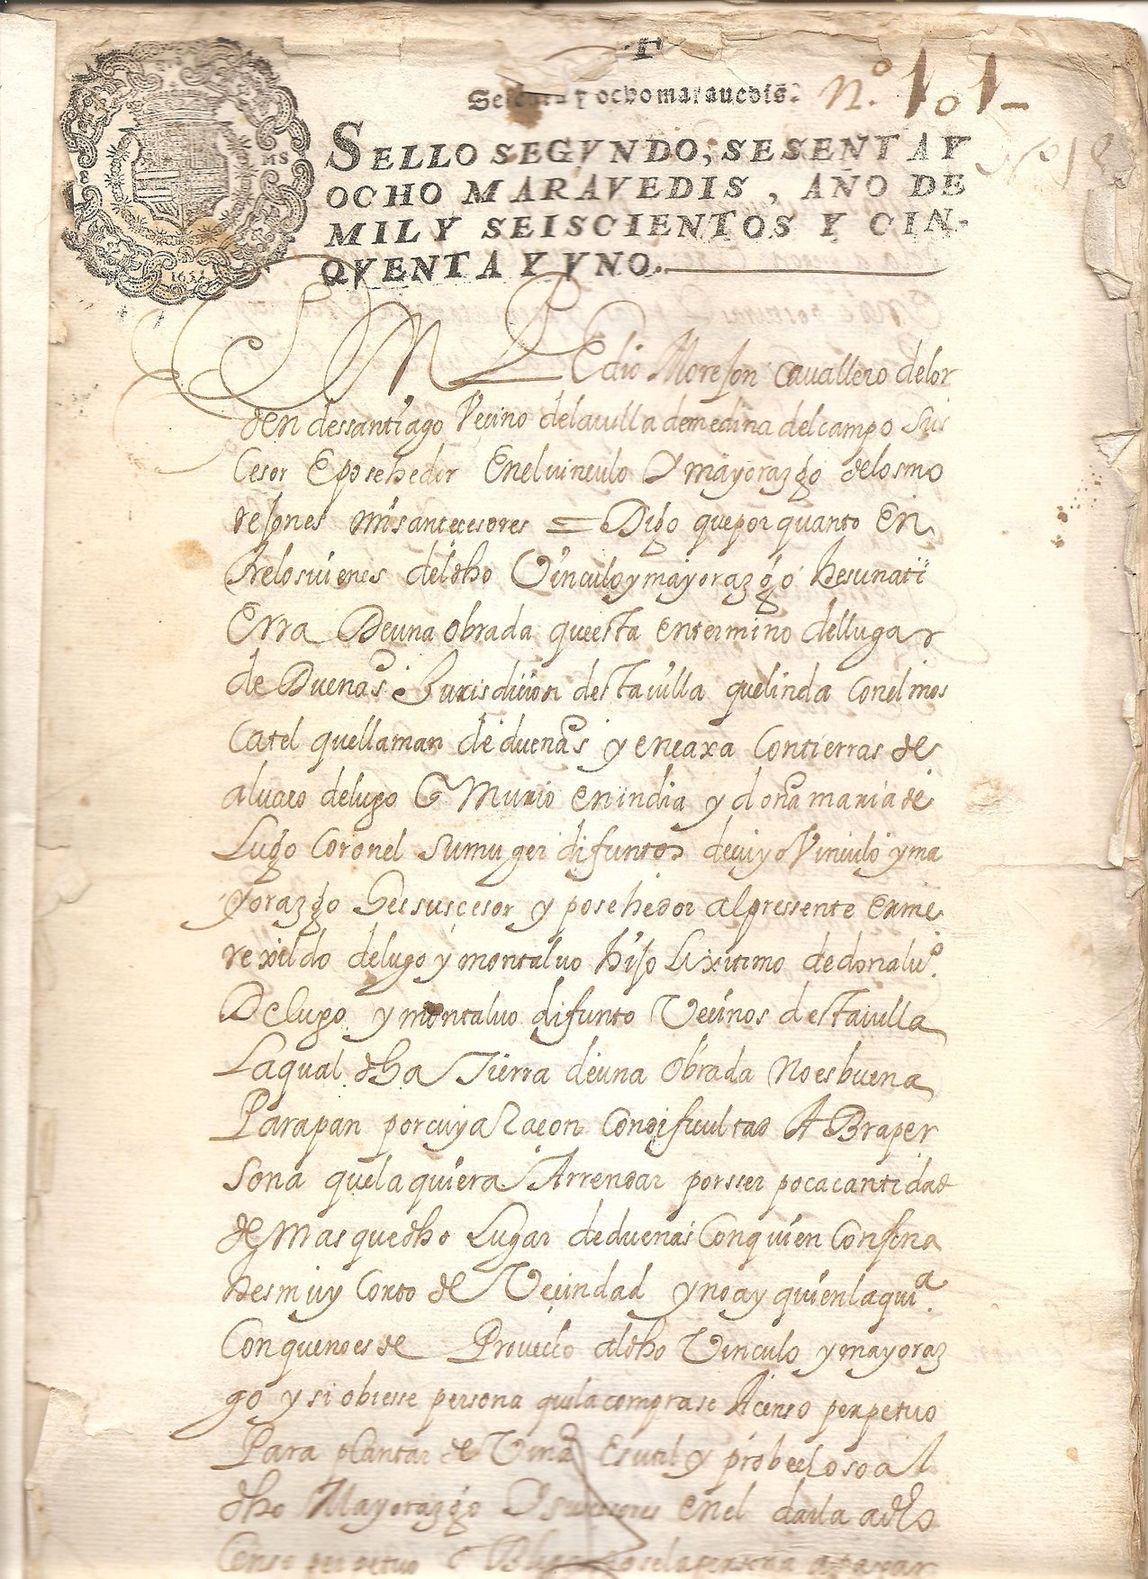 Sesenta y ocho marauedis.
N.º 101
Nº 18
SELLO SEGVNDO, SESENTA Y
OCHO MARAVEDIS, AÑO DE
MIL Y SEISCIENTOS Y CIN-
QVENTA Y VNO.
MS
1651
Morejon cavallero delor
den dessantiago Vecino delauilla demedina delcampo Suc
cesor E posehedor Enelvinculo Y mayorazgo delosmo
rejones mis antecesores = Digo quepor quanto En
trelosuienes deldho Vinculo y mayorazgo hesunati
Erra Deuna obrada queesta entermino dellugar
de Duenas Jurisdicion destauilla quelinda conelmos
Catel quellaman de duenas y encaxa Contierras de
aluaro delugo Murio en india y dona maria de
Lugo Coronel sumuger difuntos decuyo Vinculo yma
yorazgo Hes suscesor y posehedor alpressente erme
rexildo delugo y montaluo hijo Lixitimo dedonaluº
Delugo y montaluo difunto Vecinos destauilla
Laqual dha Tierra deuna obrada Noesbuena
Parapan porcuya Racon Condificultad ABraper
sona quelaquiera Arrendar porsser pocacantidad
demas quedho Lugar deduenas Conquien Confina
hesmuy Corto de Vecindad ynoay quienlaquiª
Conquenoesde Provecho aldho Vinculo ymayoraz
go y si obiesse persona quelacomprase Acenso perpetuo
Para plantar de Vina Es util y probechoso al
dho Mayorazgo Y suscesores enel darla adho
Censo perpetuo selapersona apagar